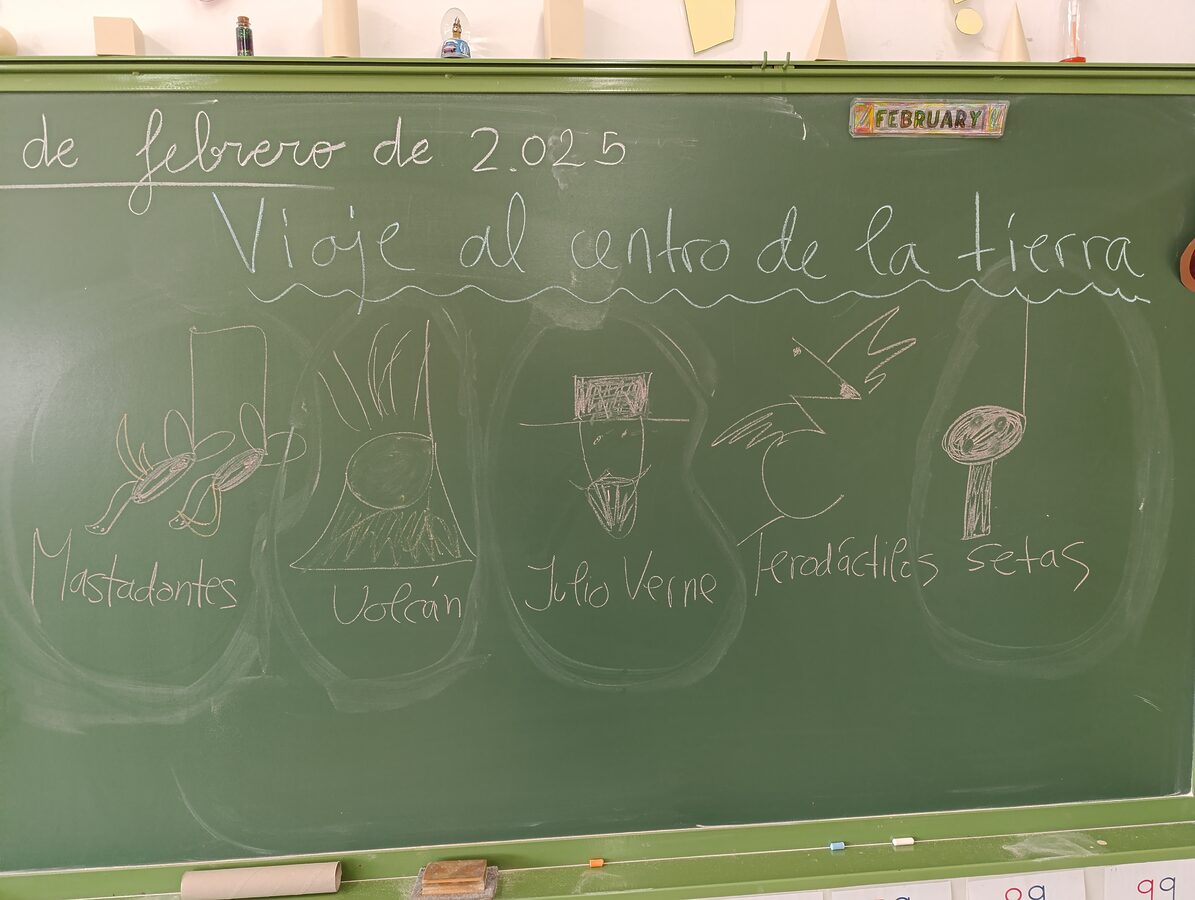 de febrero de 2.025
FEBRUARY
Viaje al centro de la tierra
Mastadontes
Volcán
Julio Verne
Terodáctilos
setas
99